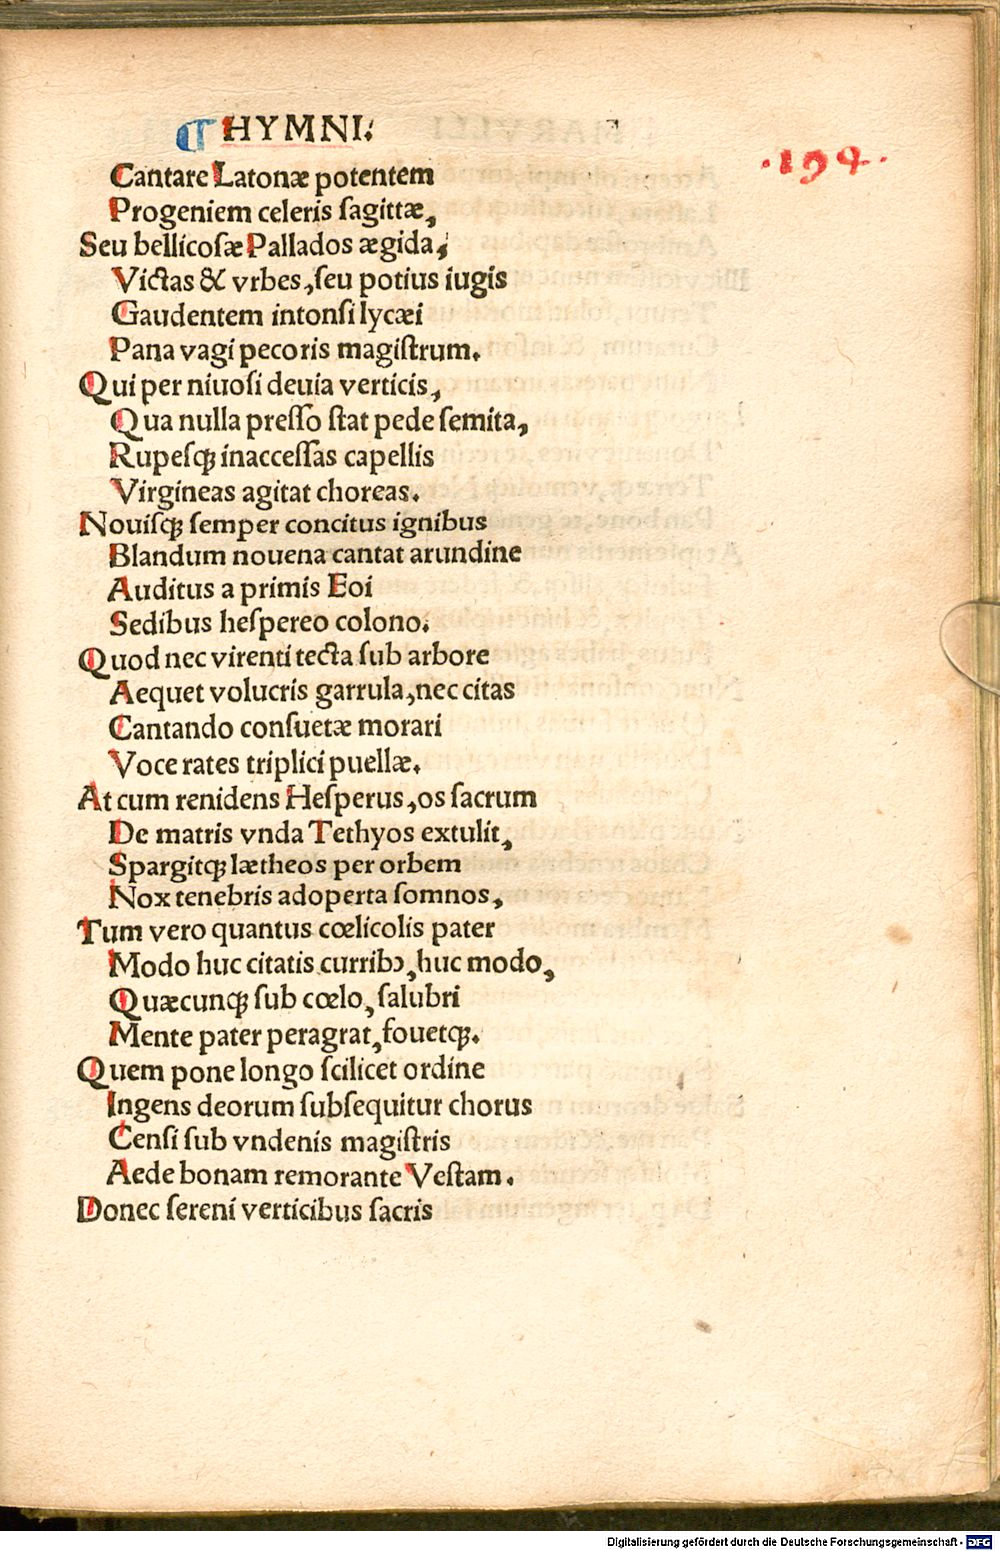 HYMNI.
.194.
Cantare Latonæ potentem
Progeniem celeris ſagittæ,
Seu bellicoſæ Pallados ægida,
Victas & vrbes, ſeu potius iugis
Gaudentem intonſi lycæi
Pana vagi pecoris magiſtrum.
Qui per niuoſi deuia verticis,
Qua nulla preſſo ſtat pede ſemita,
Rupeſqꝫ inacceſſas capellis
Virgineas agitat choreas.
Nouiſqꝫ ſemper concitus ignibus
Blandum nouena cantat arundine
Auditus a primis Eoi
Sedibus heſpereo colono.
Quod nec virenti tecta ſub arbore
Aequet volucris garrula, nec citas
Cantando conſuetæ morari
Voce rates triplici puellæ.
At cum renidens Heſperus, os ſacrum
De matris vnda Tethyos extulit,
Spargitqꝫ lætheos per orbem
Nox tenebris adoperta ſomnos,
Tum vero quantus cœlicolis pater
Modo huc citatis curribꝰ, huc modo,
Quæcunqꝫ ſub cœlo, ſalubri
Mente pater peragrat, fouetqꝫ.
Quem pone longo ſcilicet ordine
Ingens deorum ſubſequitur chorus
Cenſi ſub vndenis magiſtris
Aede bonam remorante Veſtam.
Donec ſereni verticibus ſacris
Digitalisierung gefördert durch die Deutsche Forschungsgemeinschaft - DFG